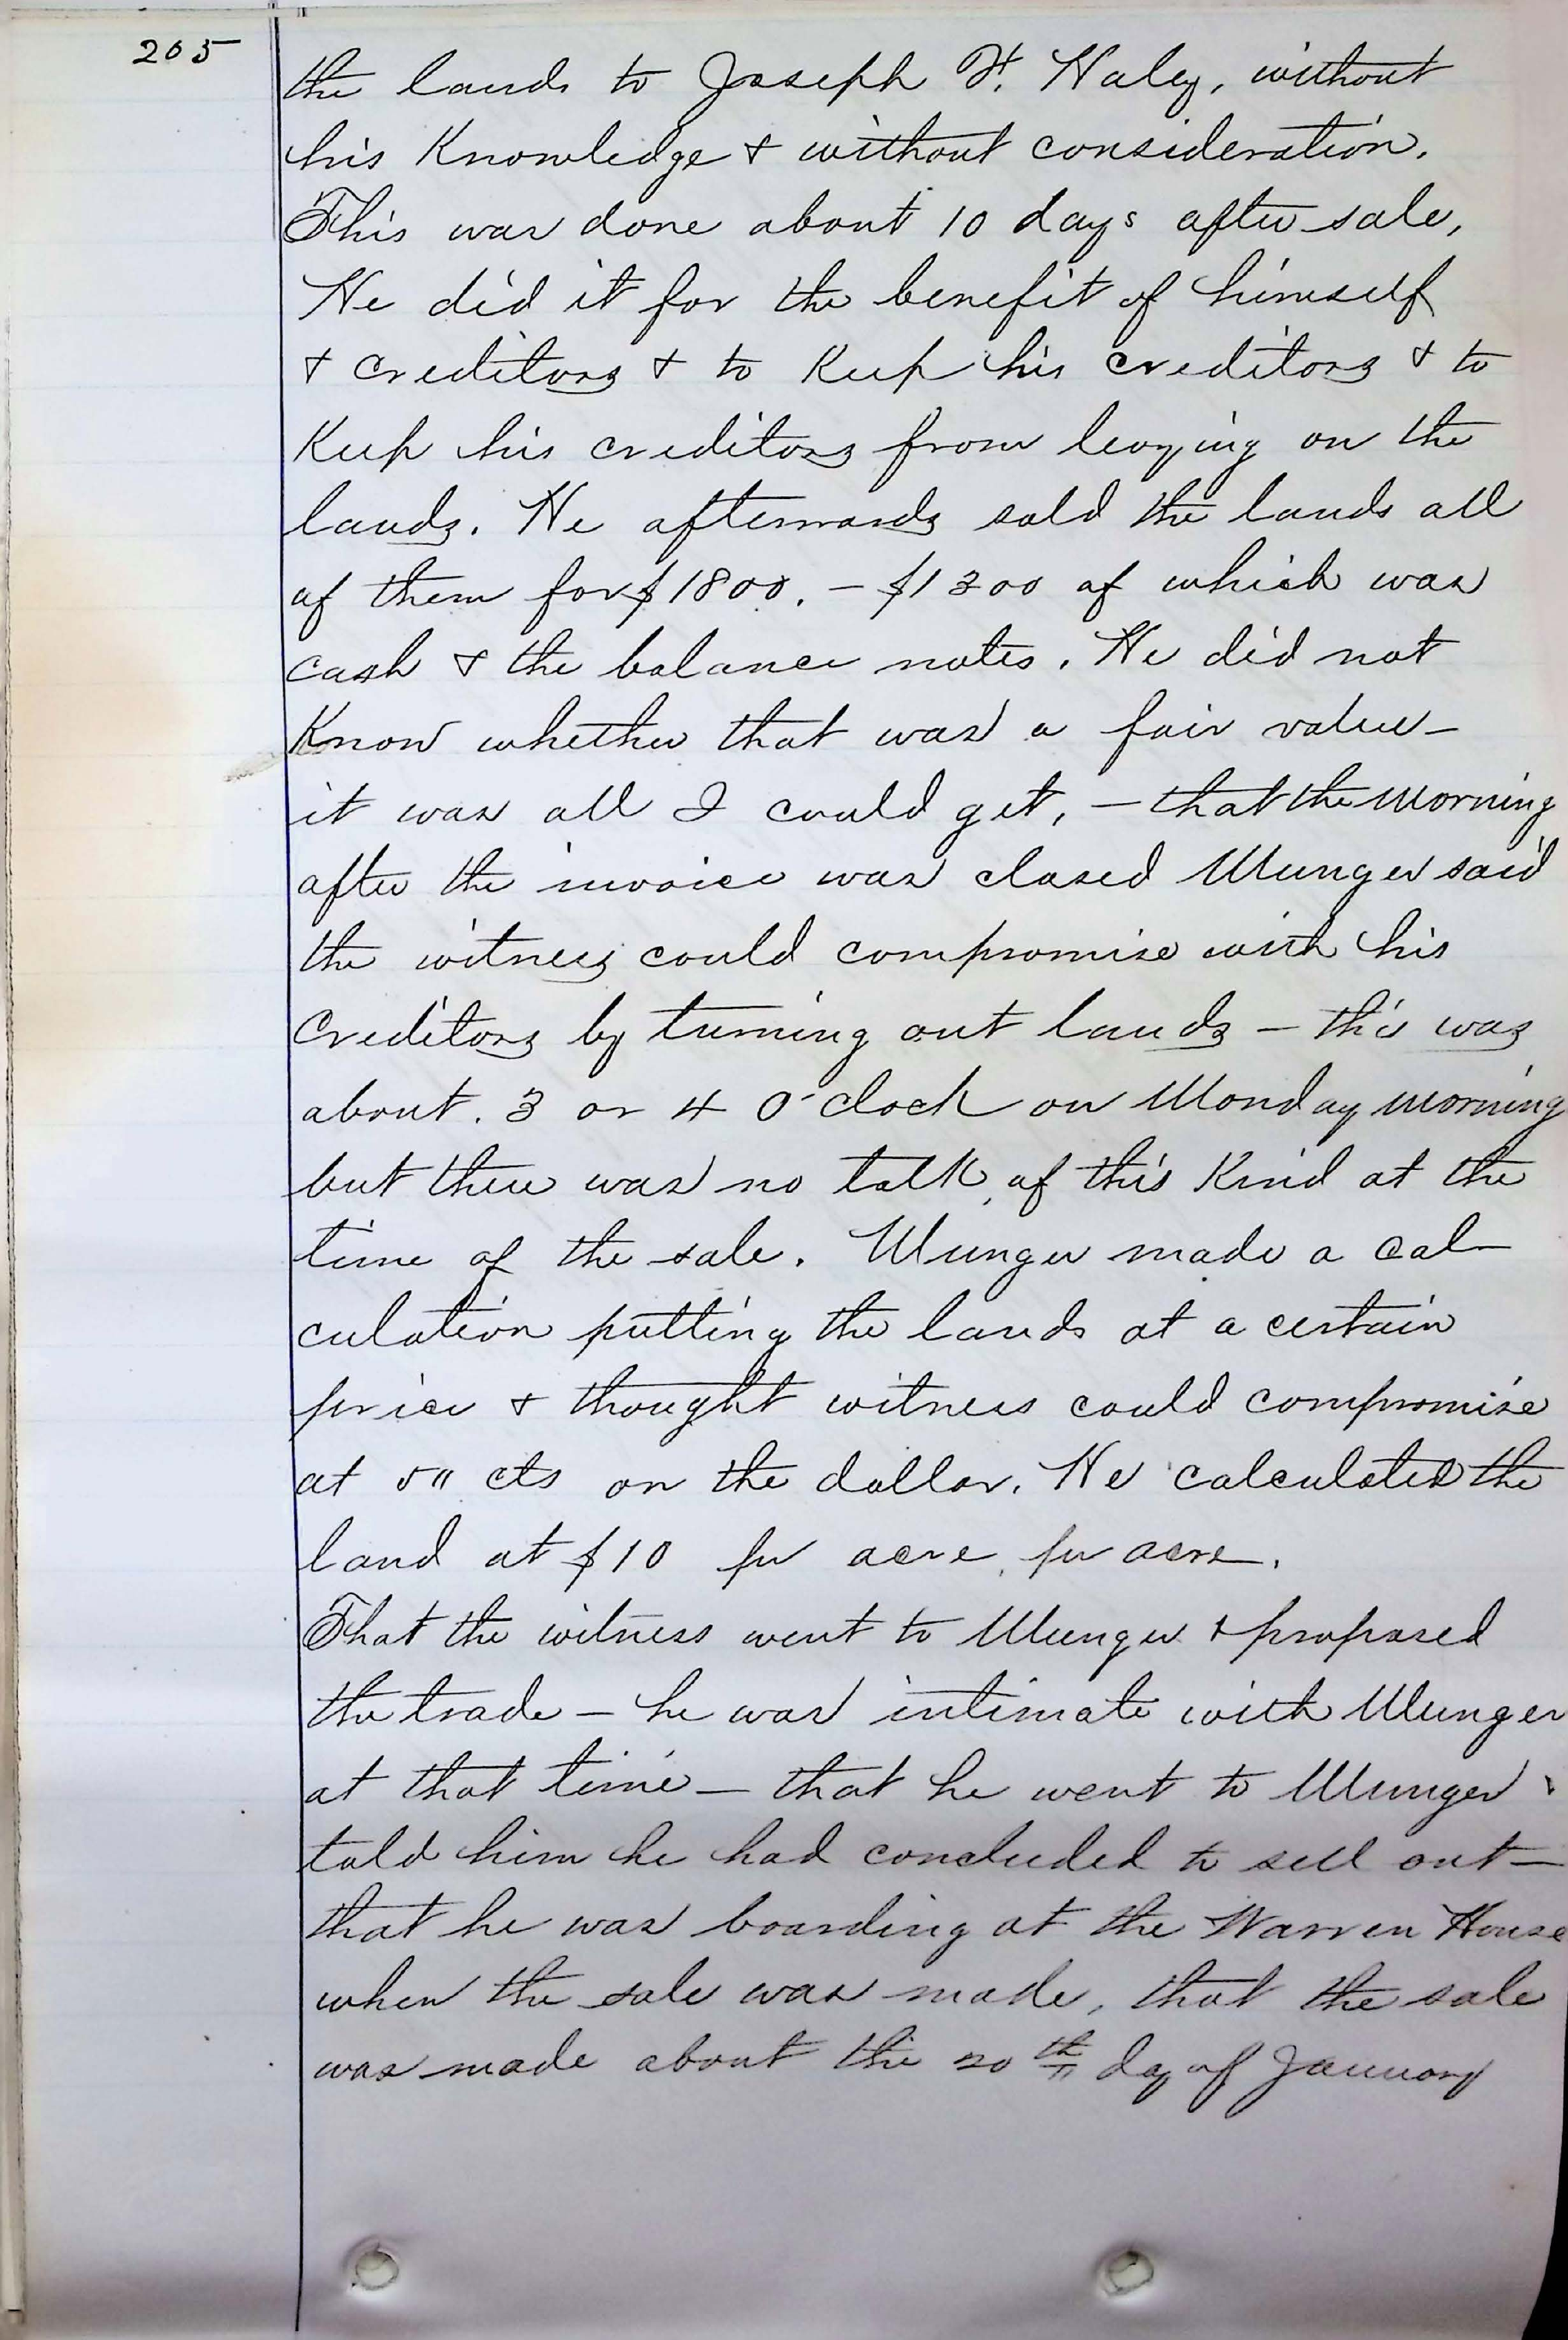 205
the lands to Joseph H. Haley, without
his Knowledge & without consideration.
This was done about 10 days after sale,
He did it for the benefit of himself
& creditors & to Keep his creditors & to
Keep his creditors from levying on the
lands. He afterwards sold the lands all
of them for $1800. — $1300 of which was
cash & the balance notes. He did not
Know whether that was a fair value —
it was all I could get, — that the morning
after the invoice was closed Munger said
the witness could compromise with his
Creditors by turning out lands — this was
about. 3 or 4 O'clock on Monday morning
but there was no talk of this Kind at the
time of the sale. Munger made a cal-
culation putting the lands at a certain
price & thought witness could compromise
at 50 cts on the dollar. He calculated the
land at $10 per acre, per acre.
That the witness went to Munger & proposed
the trade — he was intimate with Munger
at that time — that he went to Munger &
told him he had concluded to sell out —
that he was boarding at the Warren House
when the sale was made, that the sale
was made about the 20th day of January